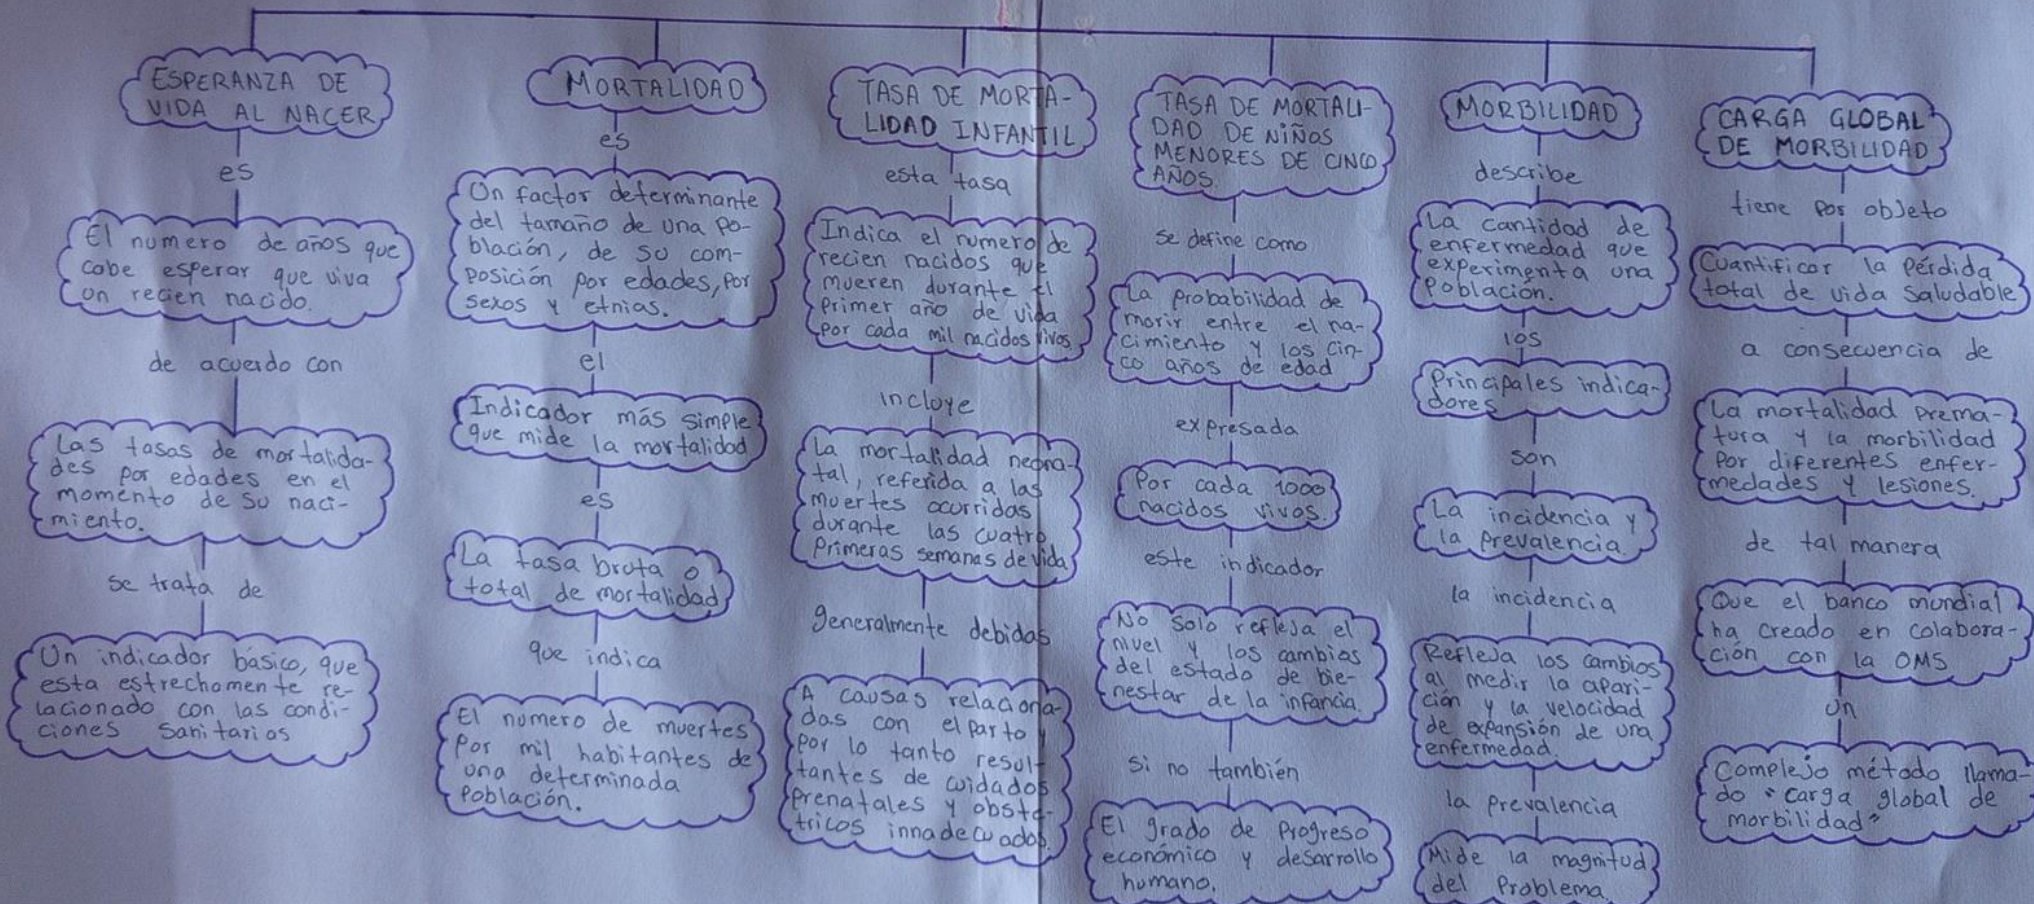 ESPERANZA DE
VIDA AL NACER
es
El numero de años que
cabe esperar que viva
un recien nacido.
de acuerdo con
Las tasas de mortalida-
des por edades en el
momento de su naci-
miento.
se trata de
Un indicador básico, que
esta estrechamente re-
lacionado con las condi-
ciones sanitarias
MORTALIDAD
es
Un factor determinante
del tamaño de una po-
blación, de su com-
posición por edades, por
sexos y etnias.
el
Indicador más simple
que mide la mortalidad
es
La tasa bruta o
total de mortalidad
que indica
El numero de muertes
por mil habitantes de
una determinada
Población.
TASA DE MORTA-
LIDAD INFANTIL
esta tasa
Indica el numero de
recien nacidos que
mueren durante el
primer año de vida
por cada mil nacidos vivos
incluye
La mortalidad neona-
tal, referida a las
muertes ocurridas
durante las cuatro
Primeras semanas de vida
generalmente debidas
A causas relaciona-
das con el parto y
por lo tanto resul-
tantes de cuidados
prenatales y obste-
tricos innadecuados.
TASA DE MORTALI-
DAD DE NIÑOS
MENORES DE CINCO
AÑOS.
se define como
La probabilidad de
morir entre el na-
cimiento y los cin-
co años de edad
expresada
Por cada 1000
nacidos vivos.
este indicador
No solo refleja el
nivel y los cambios
del estado de bie-
nestar de la infancia.
si no también
El grado de Progreso
económico y desarrollo
humano.
MORBILIDAD
describe
La cantidad de
enfermedad que
experimenta una
Población.
los
Principales indica-
dores
son
La incidencia y
la prevalencia
la incidencia
Refleja los cambios
al medir la apari-
ción y la velocidad
de expansión de una
enfermedad.
la prevalencia
Mide la magnitud
del Problema.
CARGA GLOBAL
DE MORBILIDAD
tiene por objeto
Cuantificar la pérdida
total de vida saludable
a consecuencia de
La mortalidad prema-
tura y la morbilidad
por diferentes enfer-
medades y lesiones.
de tal manera
Que el banco mundial
ha creado en colabora-
ción con la OMS
Un
Complejo método llama-
do "carga global de
morbilidad"